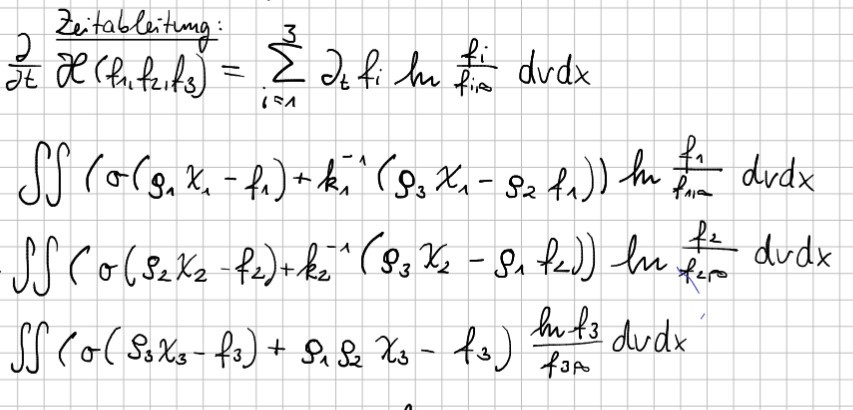 Zeitableitung:
∂/∂t ℋ(f₁,f₂,f₃) = ∑_{i=1}^{3} ∂ₜ fᵢ ln fᵢ/f_{i,∞} dvdx
∬ (σ(ρ₁ χ₁ - f₁) + k₁⁻¹ (ρ₃ χ₁ - ρ₂ f₁)) ln f₁/f_{1,∞} dvdx
∬ (σ(ρ₂ χ₂ - f₂) + k₂⁻¹ (ρ₃ χ₂ - ρ₁ f₂)) ln f₂/f_{2,∞} dvdx
∬ (σ(ρ₃ χ₃ - f₃) + ρ₁ ρ₂ χ₃ - f₃) ln f₃/f_{3,∞} dvdx